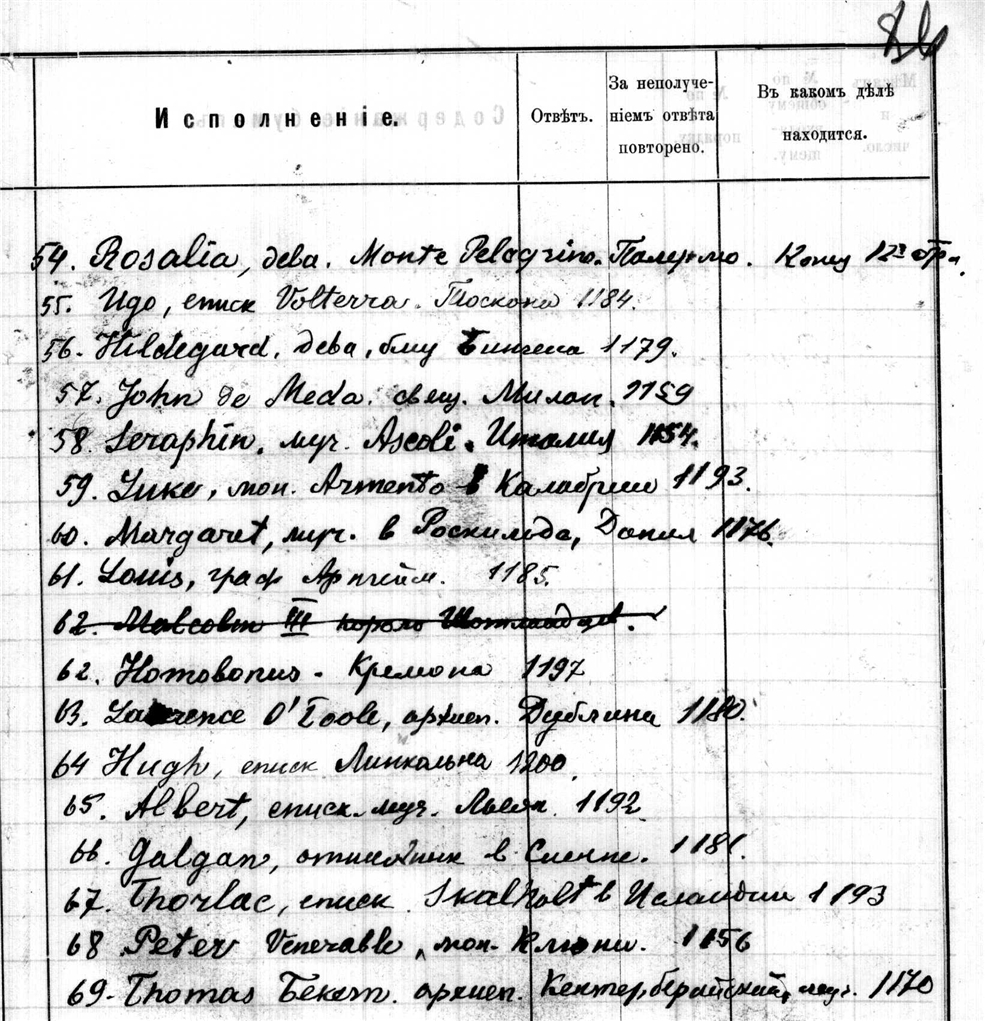 Исполненіе. Отвѣтъ. За неполуче-ніемъ отвѣта повторено. Въ какомъ дѣлѣ находится.
54. Rosalia, дева. Monte Pelegrino. Палермо. Конец 12го
55. Уго, еписк Volterra. Тоскана 1184.
56. Hildegard, дева, близ Бингена 1179.
57. John de Meda. свящ. Милан. 1159
58. Seraphin. муч. Ascoli. Италия 1154.
59. Luke, мон. Armento в Калабрии 1193.
60. Margaret, муч. в Роскильда, Дания 1176.
61. Louis, граф Арнгейм. 1185.
62. Malcolm III король Шотландии.
62. Homobonus - Кремона 1197
63. Lawrence O'Toole, архиеп. Дублина 1180.
64 Hugh, еписк Линкольна 1200.
65. Albert, еписк. муч. Льеж. 1192
66. Galgan, отшельник в Сиенне. 1181.
67. Thorlac, еписк. Skalholt в Исландии 1193
68 Peter Venerable, мон. Клюни. 1156
69. Thomas Бекет. архиеп. Кентерберийский, муч. 1170